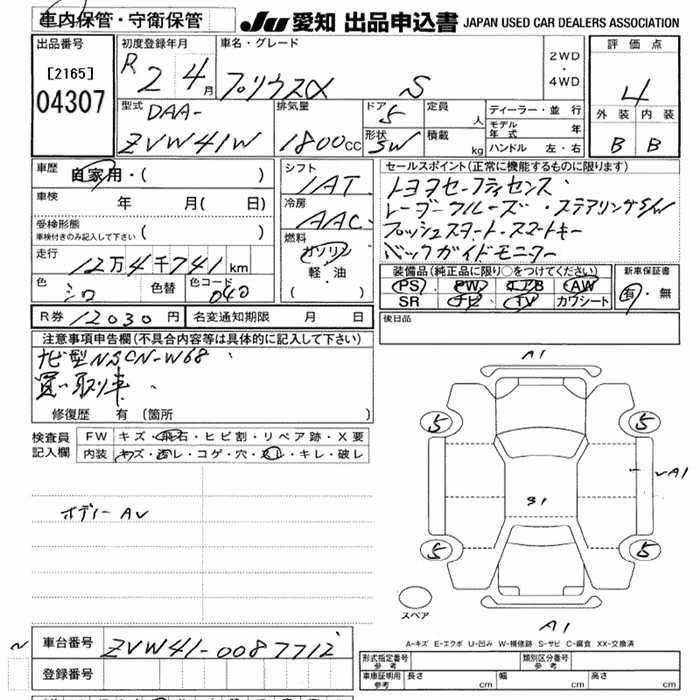 車内保管・守衛保管
Ju 愛知 出品申込書 JAPAN USED CAR DEALERS ASSOCIATION
出品番号
[2165]
04307
初度登録年月
R 2 4月
車名・グレード
プリウスα S
2WD
・
4WD
評価点
4
外装 内装
B B
型式
DAA-
ZVW41W
排気量
1800cc
ドア
5
形状
SW
定員
人
積載
kg
ディーラー・並行
モデル
年式 年
ハンドル 左・右
車歴
自家用・( )
車検
年 月( 日)
受検形態
車検付きのみ記入して下さい ( )
走行
12万4千741km
色
シロ
色替
色コード
040
シフト
IAT
冷房
AAC
燃料
ガソリン
軽・油
( )
セールスポイント(正常に機能するものに限ります)
トヨタセーフティセンス
レーダークルーズ・ステアリングS/W
プッシュスタート・スマートキー
バックガイドモニター
装備品(純正品に限り○をつけてください)
PS PW エアB AW
SR ナビ TV カワシート
新車保証書
有・無
後日品
R券 12030円
名変通知期限 月 日
注意事項申告欄(不具合内容等は具体的に記入して下さい)
ナビ型NSCN-W68
買い取り車
修復歴 有(箇所 )
検査員
記入欄
FW キズ・飛石・ヒビ割・リペア跡・X要
内装 キズ・汚レ・コゲ・穴・スレ・キレ・破レ
ボデーAV
A1
5 5
A1
S1
5 5
スペア
A1
A-キズ E-エクボ U-凹み W-補修跡 S-サビ C-腐食 XX-交換済
車台番号 ZVW41-0087712
登録番号
形式指定番号
参考
類別区分番号
参考
車庫証明用
参考
長さ cm 幅 cm 高さ cm